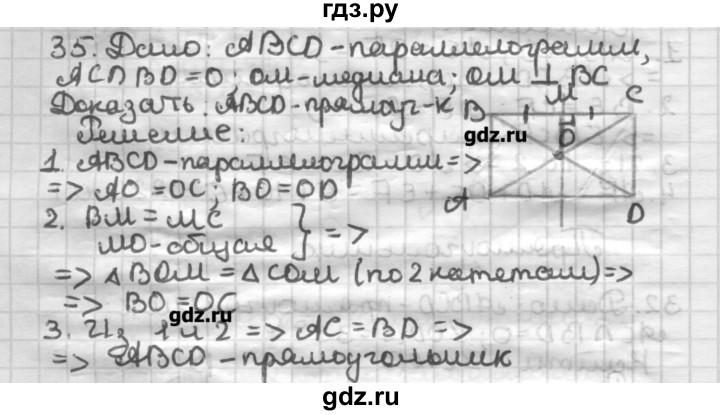 гдз.ру
35. Дано: ABCD - параллелограмм,
AC∩BD=O; ОМ-медиана; ОМ ⊥ BC
Доказать: ABCD-прямоуг-к
Решение:
M
B
C
gdz.ru
O
1. ABCD-параллелограмм =>
=> AO = OC; BO = OD
A
D
2. BM = MC
MO-общая } =>
=> △ BOM = △ COM (по 2 катетам) =>
=> BO = OC
gdz.ru
3. Из 1 и 2 => AC = BD =>
=> ABCD - прямоугольник
gdz.ru